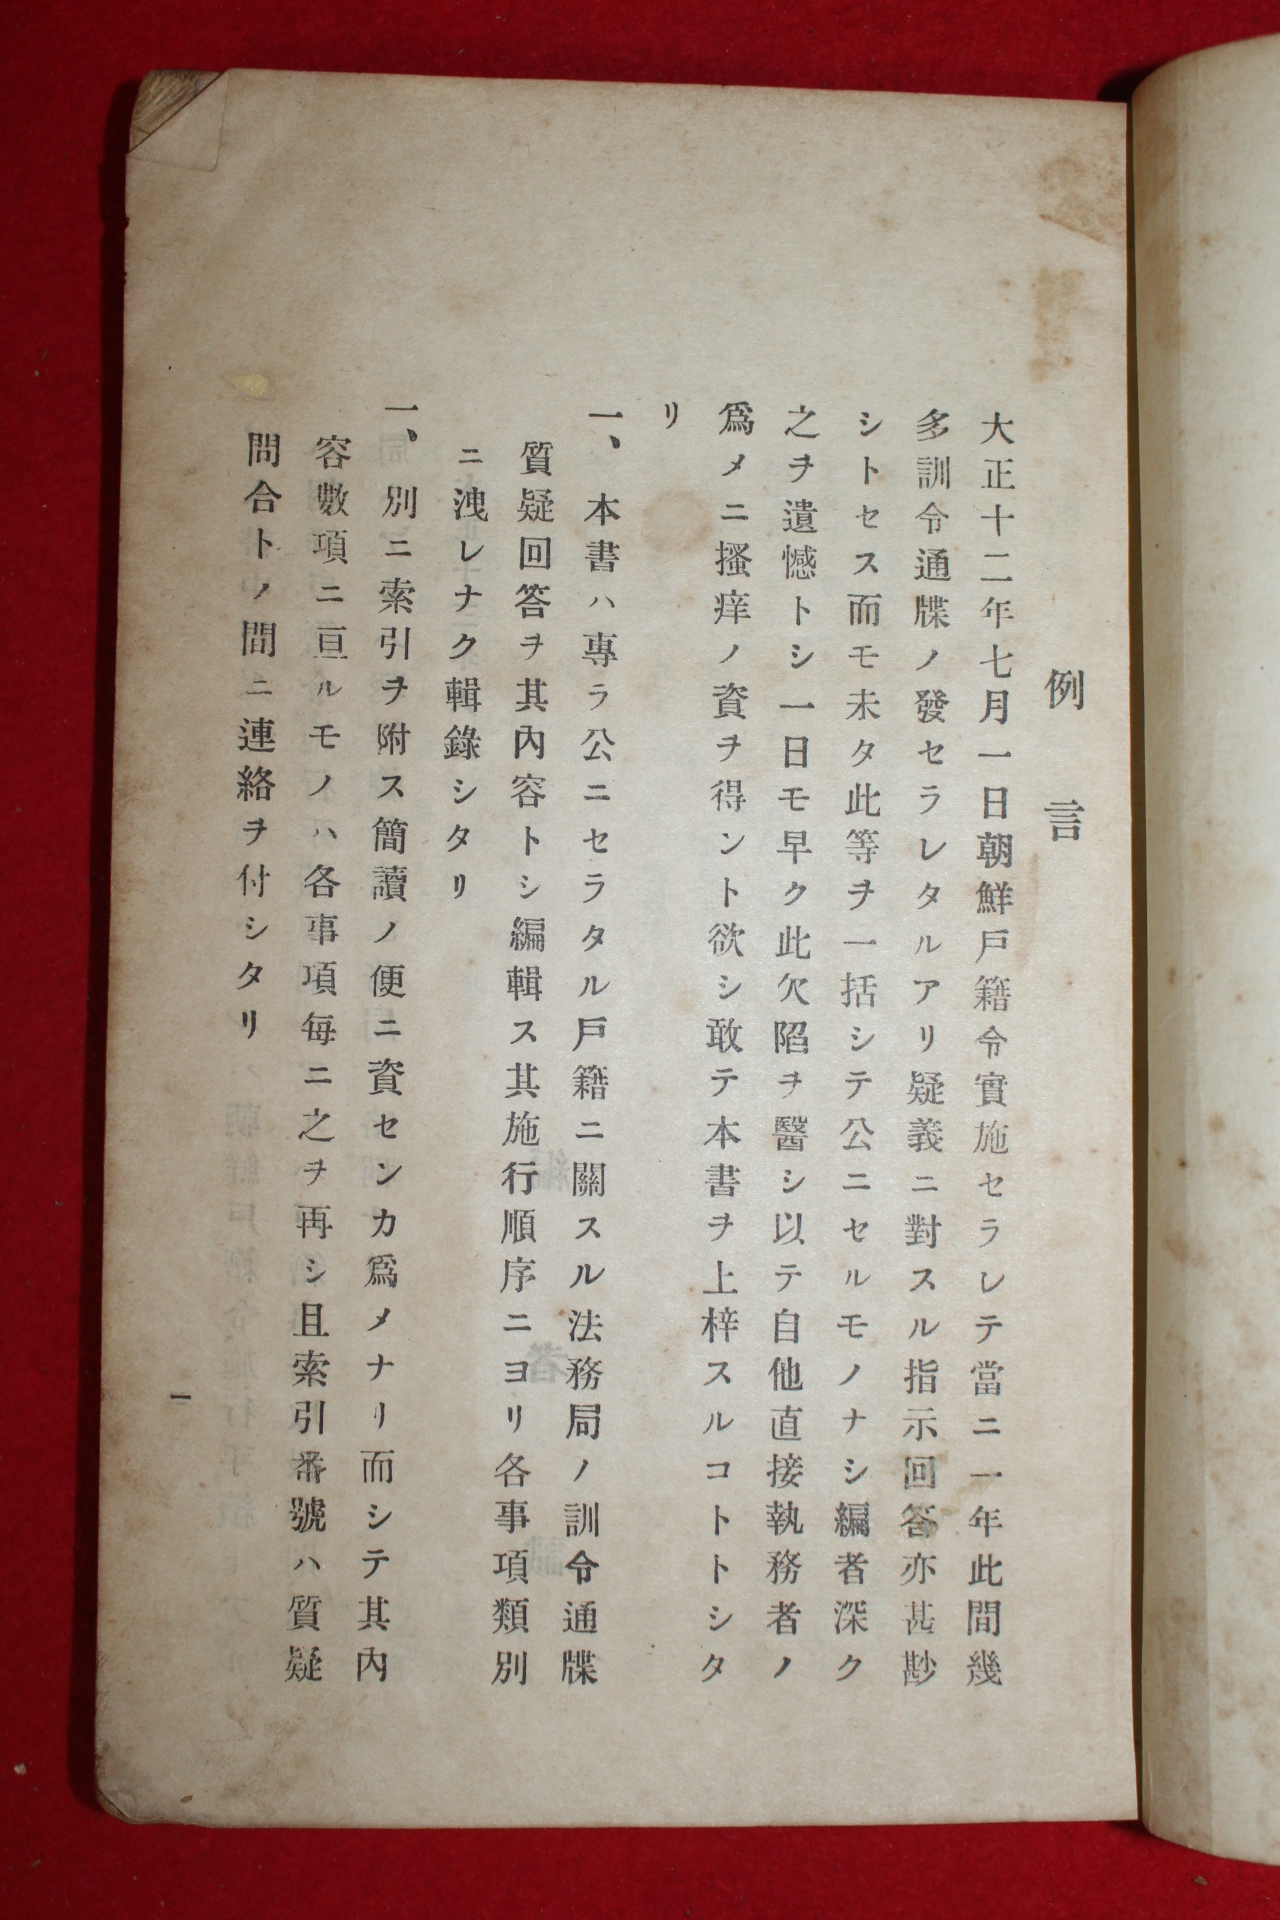 例言
大正十二年七月一日朝鮮戸籍令實施セラレテ當ニ一年此間幾
多訓令通牒ノ發セラレタルアリ疑義ニ對スル指示回答亦甚尠
シトセス而モ未タ此等ヲ一括シテ公ニセルモノナシ編者深ク
之ヲ遺憾トシ一日モ早ク此欠陷ヲ醫シ以テ自他直接執務者ノ
爲メニ搔痒ノ資ヲ得ント欲シ敢テ本書ヲ上梓スルコトトシタ
リ
一、本書ハ專ラ公ニセラタル戸籍ニ關スル法務局ノ訓令通牒
質疑回答ヲ其內容トシ編輯ス其施行順序ニヨリ各事項類別
ニ洩レナク輯錄シタリ
一、別ニ索引ヲ附ス簡讀ノ便ニ資センカ爲メナリ而シテ其內
容數項ニ亘ルモノハ各事項每ニ之ヲ再シ且索引番號ハ質疑
問合トノ間ニ連絡ヲ付シタリ
一